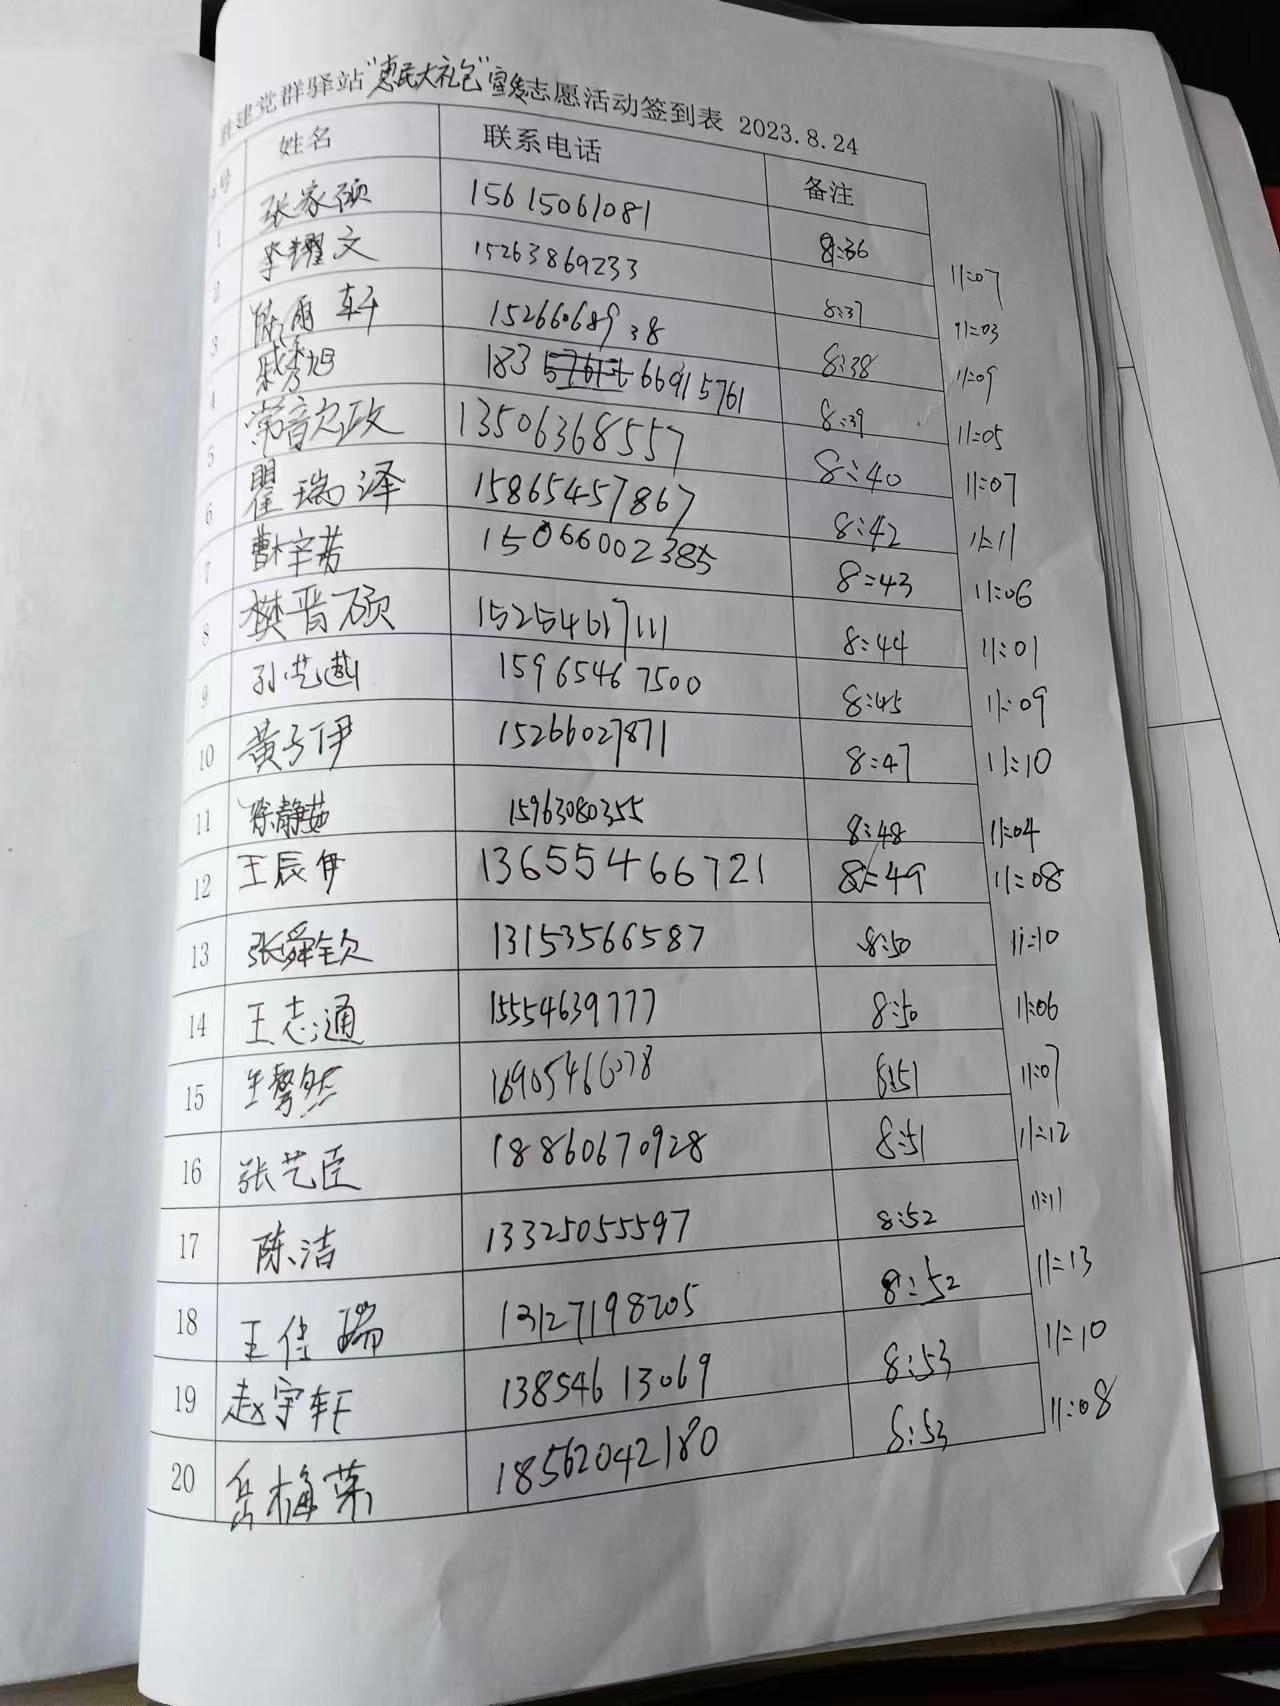 建党群驿站“惠民大礼包”宣传志愿活动签到表 2023.8.24
号 姓名 联系电话 备注
1 张家硕 15615061081 8:36 11:07
2 李耀文 15263869233 8:37 11:03
3 陈雨轩 15266068938 8:38 11:09
4 183 66915761 8:39 11:05
5 常音欠政 13506368557 8:40 11:07
6 瞿瑞泽 15865457867 8:42 11:11
7 曹辛芳 15066002385 8:43 11:06
8 樊晋硕 15254617111 8:44 11:01
9 孙艺 15965467500 8:45 11:09
10 黄子伊 15266027871 8:47 11:10
11 徐静茹 15963080355 8:48 11:04
12 王辰伊 13655466721 8:49 11:08
13 张舜钦 13153566587 8:50 11:10
14 王志通 15554639777 8:50 11:06
15 王馨然 8:51 11:07
16 张艺臣 18860670928 8:51 11:12
17 陈洁 13325055597 8:52 11:11
18 王佳瑞 13127198205 8:52 11:13
19 赵宇轩 13854613069 8:53 11:10
20 岳梅荣 18562042180 8:53 11:08